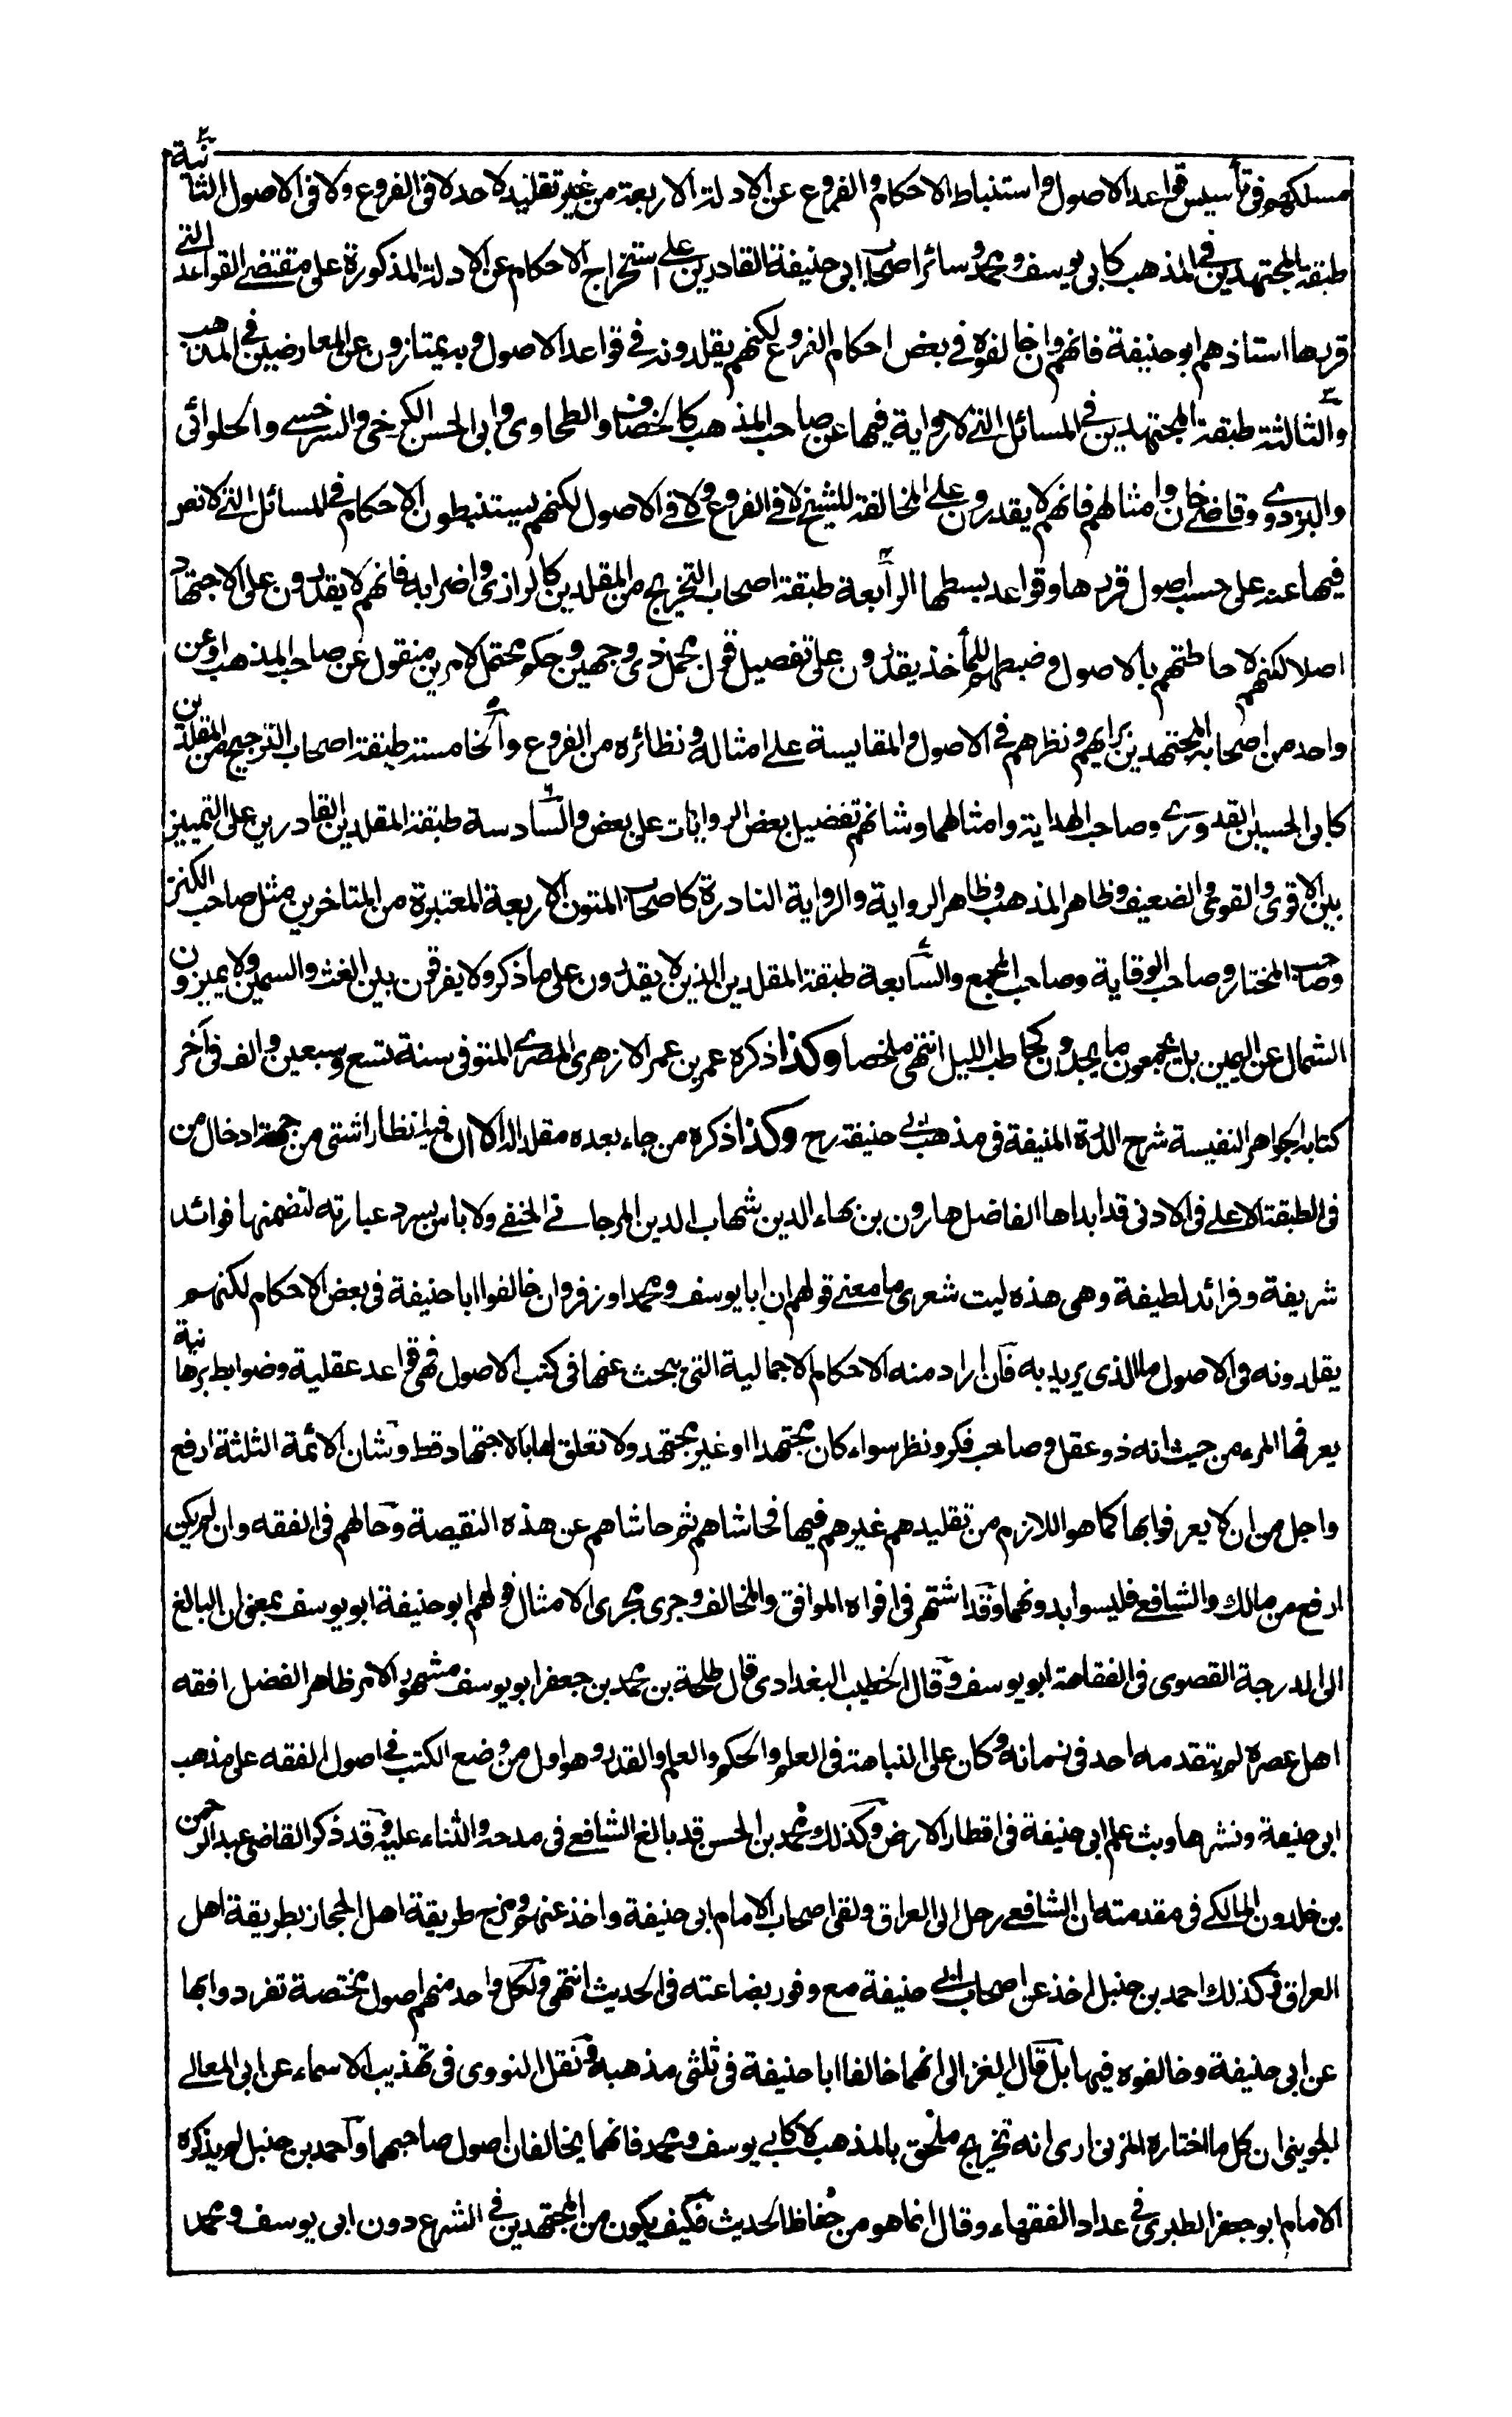 مسلكهم فى تأسيس قواعد الاصول واستنباط الاحكام والفروع عن الادلة الاربعة من غير تقليد لاحد لا فى الفروع ولا فى الاصول الثانية
طبقة المجتهدين فى المذهب كابى يوسف ومحمد وسائر اصحاب ابى حنيفة القادرين على استخراج الاحكام عن الادلة المذكورة على مقتضى القواعد التى
قررها استاذهم ابو حنيفة فانهم وان خالفوه فى بعض احكام الفروع لكنهم يقلدونه فى قواعد الاصول وبه يمتازون عن المعارضين فى المذهب
والثالثة طبقة المجتهدين فى المسائل التى لا رواية فيها عن صاحب المذهب كالخصاف والطحاوى وابى الحسن الكرخى والسرخسى والحلوائى
والبزدوى وقاضى خان وامثالهم فانهم لا يقدرون على المخالفة للشيخ لا فى الفروع ولا فى الاصول لكنهم يستنبطون الاحكام فى المسائل التى لا نص
فيها عنه على حسب اصول قررها وقواعد بسطها الرابعة طبقة اصحاب التخريج من المقلدين كالرازى واضرابه فانهم لا يقدرون على الاجتهاد
اصلا لكنهم لاحاطتهم بالاصول وضبطهم للمأخذ يقدرون على تفصيل قول مجمل ذى وجهين وحكم محتمل لامرين منقول عن صاحب المذهب او عن
واحد من اصحابه المجتهدين برايهم ونظرهم فى الاصول والمقايسة على امثاله ونظائره من الفروع والخامسة طبقة اصحاب الترجيح من المقلدين
كابى الحسين القدورى وصاحب الهداية وامثالهما وشانهم تفضيل بعض الروايات على بعض والسادسة طبقة المقلدين القادرين على التمييز
بين الاقوى والقوى والضعيف وظاهر المذهب وظاهر الرواية والرواية النادرة كاصحاب المتون الاربعة المعتبرة من المتاخرين مثل صاحب الكنز
وصاحب المختار وصاحب الوقاية وصاحب المجمع والسابعة طبقة المقلدين الذين لا يقدرون على ما ذكر ولا يفرقون بين الغث والسمين ولا يميزون
الشمال عن اليمين بل يجمعون ما يجدون كحاطب الليل انتهى ملخصا وكذا ذكره عمر بن عمر الازهرى المصرى المتوفى سنة تسع وسبعين والف فى آخر
كتابه الجواهر النفيسة شرح الدرة المنيفة فى مذهب ابى حنيفة رح وكذا ذكره من جاء بعده مقلدا له الا ان فيه انظارا شتى من جهة ادخال من
فى الطبقة الاعلى فى الادنى قد ابداها الفاضل هارون بن بهاء الدين شهاب الدين المرجانى الحنفى ولا باس بسرد عبارته لتضمنها فوائد
شريفة وفرائد لطيفة وهى هذه ليت شعرى ما معنى قولهم ان ابا يوسف ومحمدا وزفر وان خالفوا ابا حنيفة فى بعض الاحكام لكنهم
يقلدونه فى الاصول ما الذى يريد به فان اراد منه الاحكام الاجمالية التى يبحث عنها فى كتب الاصول فهى قواعد عقلية وضوابط برهانية
يعرفها المرء من حيث انه ذو عقل وصاحب فكر ونظر سواء كان مجتهدا او غير مجتهد ولا تعلق لها بالاجتهاد قط وشان الائمة الثلثة ارفع
واجل من ان لا يعرفوا بها كما هو اللازم من تقليدهم غيرهم فيها فحاشاهم ثم حاشاهم عن هذه النقيصة وحالهم فى الفقه وان لم يكن
ارفع من مالك والشافعى فليسوا بدونهما وقد اشتهر فى افواه الموافق والمخالف وجرى مجرى الامثال قولهم ابو حنيفة ابو يوسف بمعنى ان البالغ
الى الدرجة القصوى فى الفقاهة ابو يوسف وقال الخطيب البغدادى قال طلحة بن محمد بن جعفر ابو يوسف مشهور الامر ظاهر الفضل افقه
اهل عصره لم يتقدمه احد فى زمانه وكان على النباهة فى العلم والحكم والعلم والقدر وهو اول من وضع الكتب فى اصول الفقه على مذهب
ابى حنيفة ونشرها وبث علم ابى حنيفة فى اقطار الارض وكذلك محمد بن الحسن قد بالغ الشافعى فى مدحه والثناء عليه وقد ذكر القاضى عبد الرحمن
بن خلدون المالكى فى مقدمته ان الشافعى رحل الى العراق ولقى اصحاب الامام ابى حنيفة واخذ عنهم ومزج طريقة اهل الحجاز بطريقة اهل
العراق وكذلك احمد بن حنبل اخذ عن اصحاب ابى حنيفة مع وفور بضاعته فى الحديث انتهى ولكل واحد منهم اصول مختصة تفردوا بها
عن ابى حنيفة وخالفوه فيها بل قال الغزالى انهما خالفا ابا حنيفة فى ثلثى مذهبه ونقل النووى فى تهذيب الاسماء عن ابى المعالى
الجوينى ان كل ما اختاره المزنى ارى انه تخريج ملحق بالمذهب لا كابى يوسف ومحمد فانهما يخالفان اصول صاحبهما واحمد بن حنبل لم يذكره
الامام ابو جعفر الطبرى فى عداد الفقهاء وقال انما هو من حفاظ الحديث فكيف يكون من المجتهدين فى الشرع دون ابى يوسف ومحمد